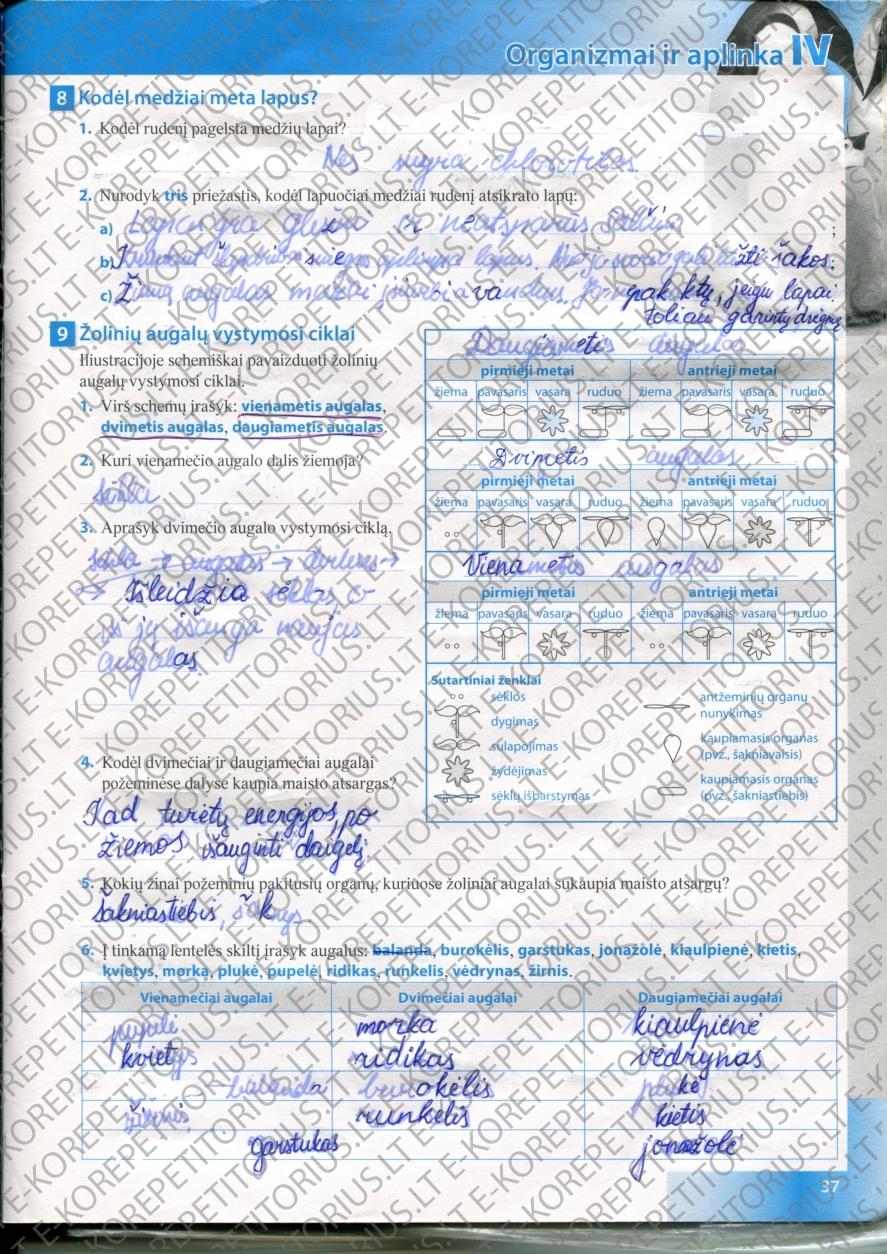 Organizmai ir aplinka IV
8 Kodėl medžiai meta lapus?
1. Kodėl rudenį pagelsta medžių lapai?
Nes suyra chlorofilas
2. Nurodyk tris priežastis, kodėl lapuočiai medžiai rudenį atsikrato lapų:
a) Lapai yra gležni ir neatsparūs šalčiui ;
b) sniegas lapus. Nuo jo svorio gali lūžti šakos;
c) Žiemą augalas mažai įsiurbia vandens. pakaktų, jeigu lapai
toliau garintų drėgmę
9 Žolinių augalų vystymosi ciklai
Iliustracijoje schemiškai pavaizduoti žolinių
augalų vystymosi ciklai.
1. Virš schemų įrašyk: vienametis augalas,
dvimetis augalas, daugiametis augalas.
2. Kuri vienamečio augalo dalis žiemoja?
Sėkla
3. Aprašyk dvimečio augalo vystymosi ciklą.
sėkla → augalas →
→ Išleidžia sėklas o
iš jų išauga naujas
augalas
Daugiametis augalas
pirmieji metai antrieji metai
žiema pavasaris vasara ruduo žiema pavasaris vasara ruduo
Dvimetis augalas
pirmieji metai antrieji metai
žiema pavasaris vasara ruduo žiema pavasaris vasara ruduo
Vienametis augalas
pirmieji metai antrieji metai
žiema pavasaris vasara ruduo žiema pavasaris vasara ruduo
Sutartiniai ženklai
sėklos
dygimas
sulapojimas
žydėjimas
sėklų išbarstymas
antžeminių organų
nunykimas
kaupiamasis organas
(pvz., šakniavaisis)
kaupiamasis organas
(pvz., šakniastiebis)
4. Kodėl dvimečiai ir daugiamečiai augalai
požeminėse dalyse kaupia maisto atsargas?
Kad turėtų energijos, po
žiemos išauginti daigelį
5. Kokių žinai požeminių pakitusių organų, kuriuose žoliniai augalai sukaupia maisto atsargų?
Šakniastiebis,
6. Į tinkamą lentelės skiltį įrašyk augalus: balanda, burokėlis, garstukas, jonažolė, kiaulpienė, kietis,
kvietys, morka, plukė, pupelė, ridikas, runkelis, vėdrynas, žirnis.
Vienamečiai augalai Dvimečiai augalai Daugiamečiai augalai
pupelė morka kiaulpienė
kvietys ridikas vėdrynas
balanda burokėlis plukė
žirnis runkelis kietis
garstukas jonažolė
37
E-KOREPETITORIUS.LT